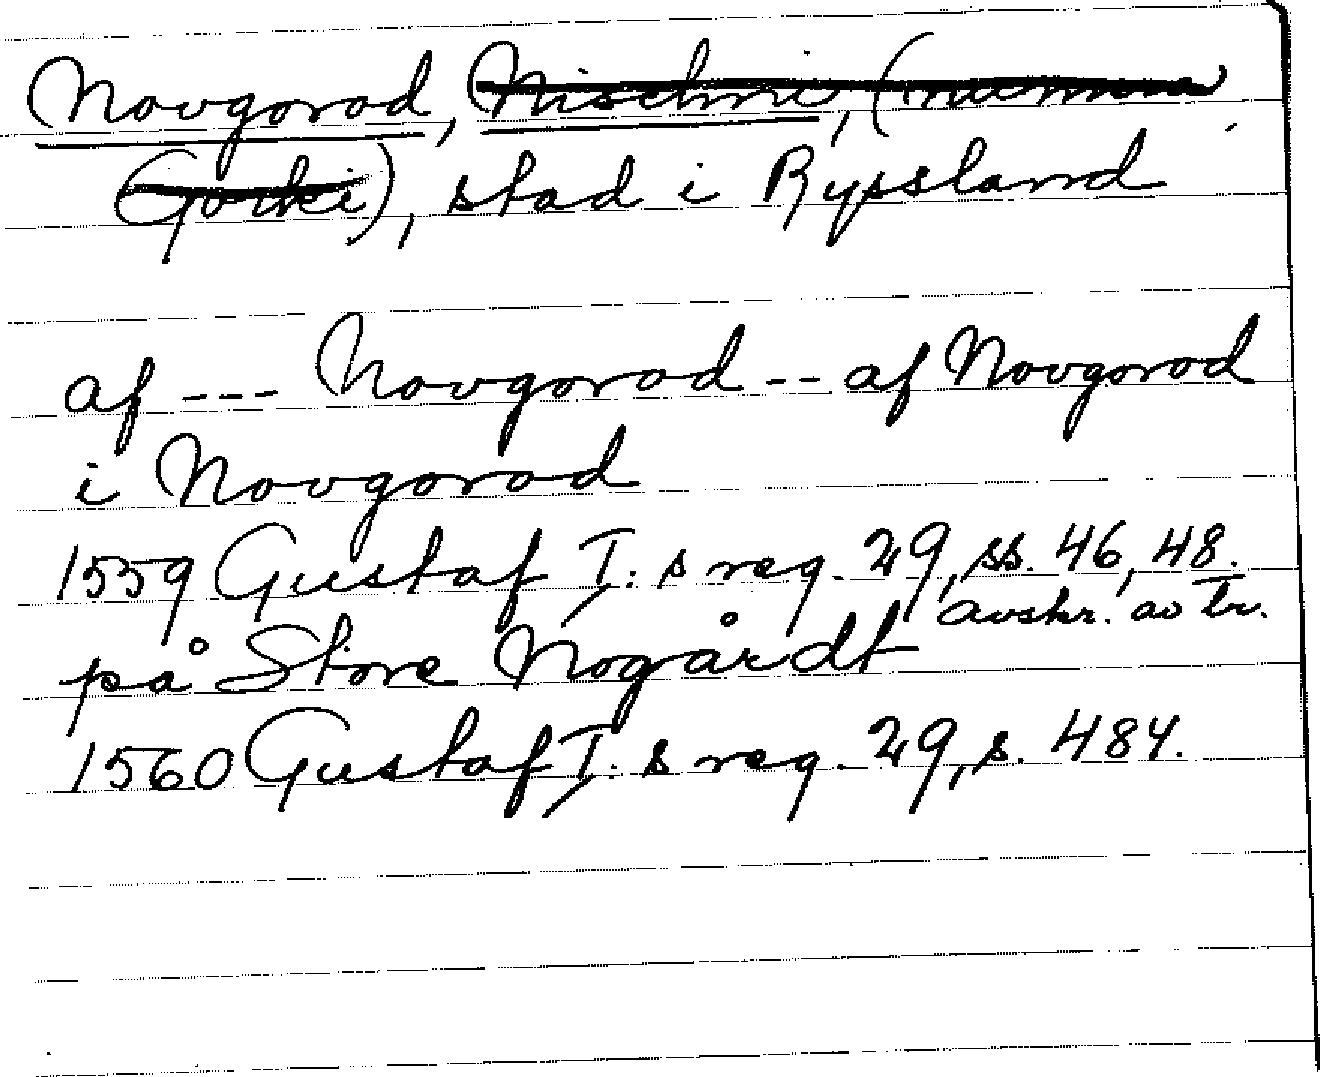 Novgorod, Nischni, (numera
Gorki), stad i Ryssland
af --- Novgorod -- af Novgorod
i Novgorod
1559 Gustaf I:s reg. 29, ss. 46, 48.
avskr. av tr.
på Store Nogårdt
1560 Gustaf I:s reg. 29, s. 484.